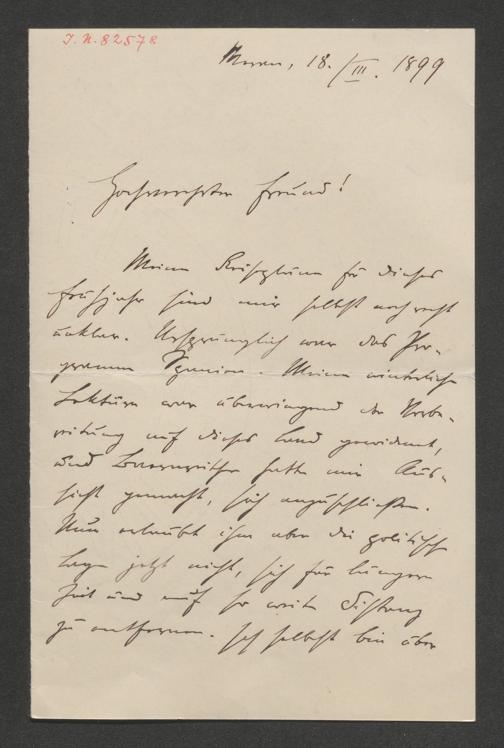 I. N. 82578
Meran, 18./III. 1899
Hochverehrter Freund!
Meine Reisepläne für dieses
Frühjahr sind mir selbst noch recht
unklar. Ursprünglich war das Pro-
gramm Spanien. Meine winterliche
Lektüre war überwiegend der Vorbe-
reitung auf dieses Land gewidmet,
und hatte mir Aus-
sicht gemacht, sich anzuschließen.
Nun erlaubt ihm aber die politische
Lage jetzt nicht, sich für längere
Zeit und auf so weite Distanz
zu entfernen. Ich selbst bin aber